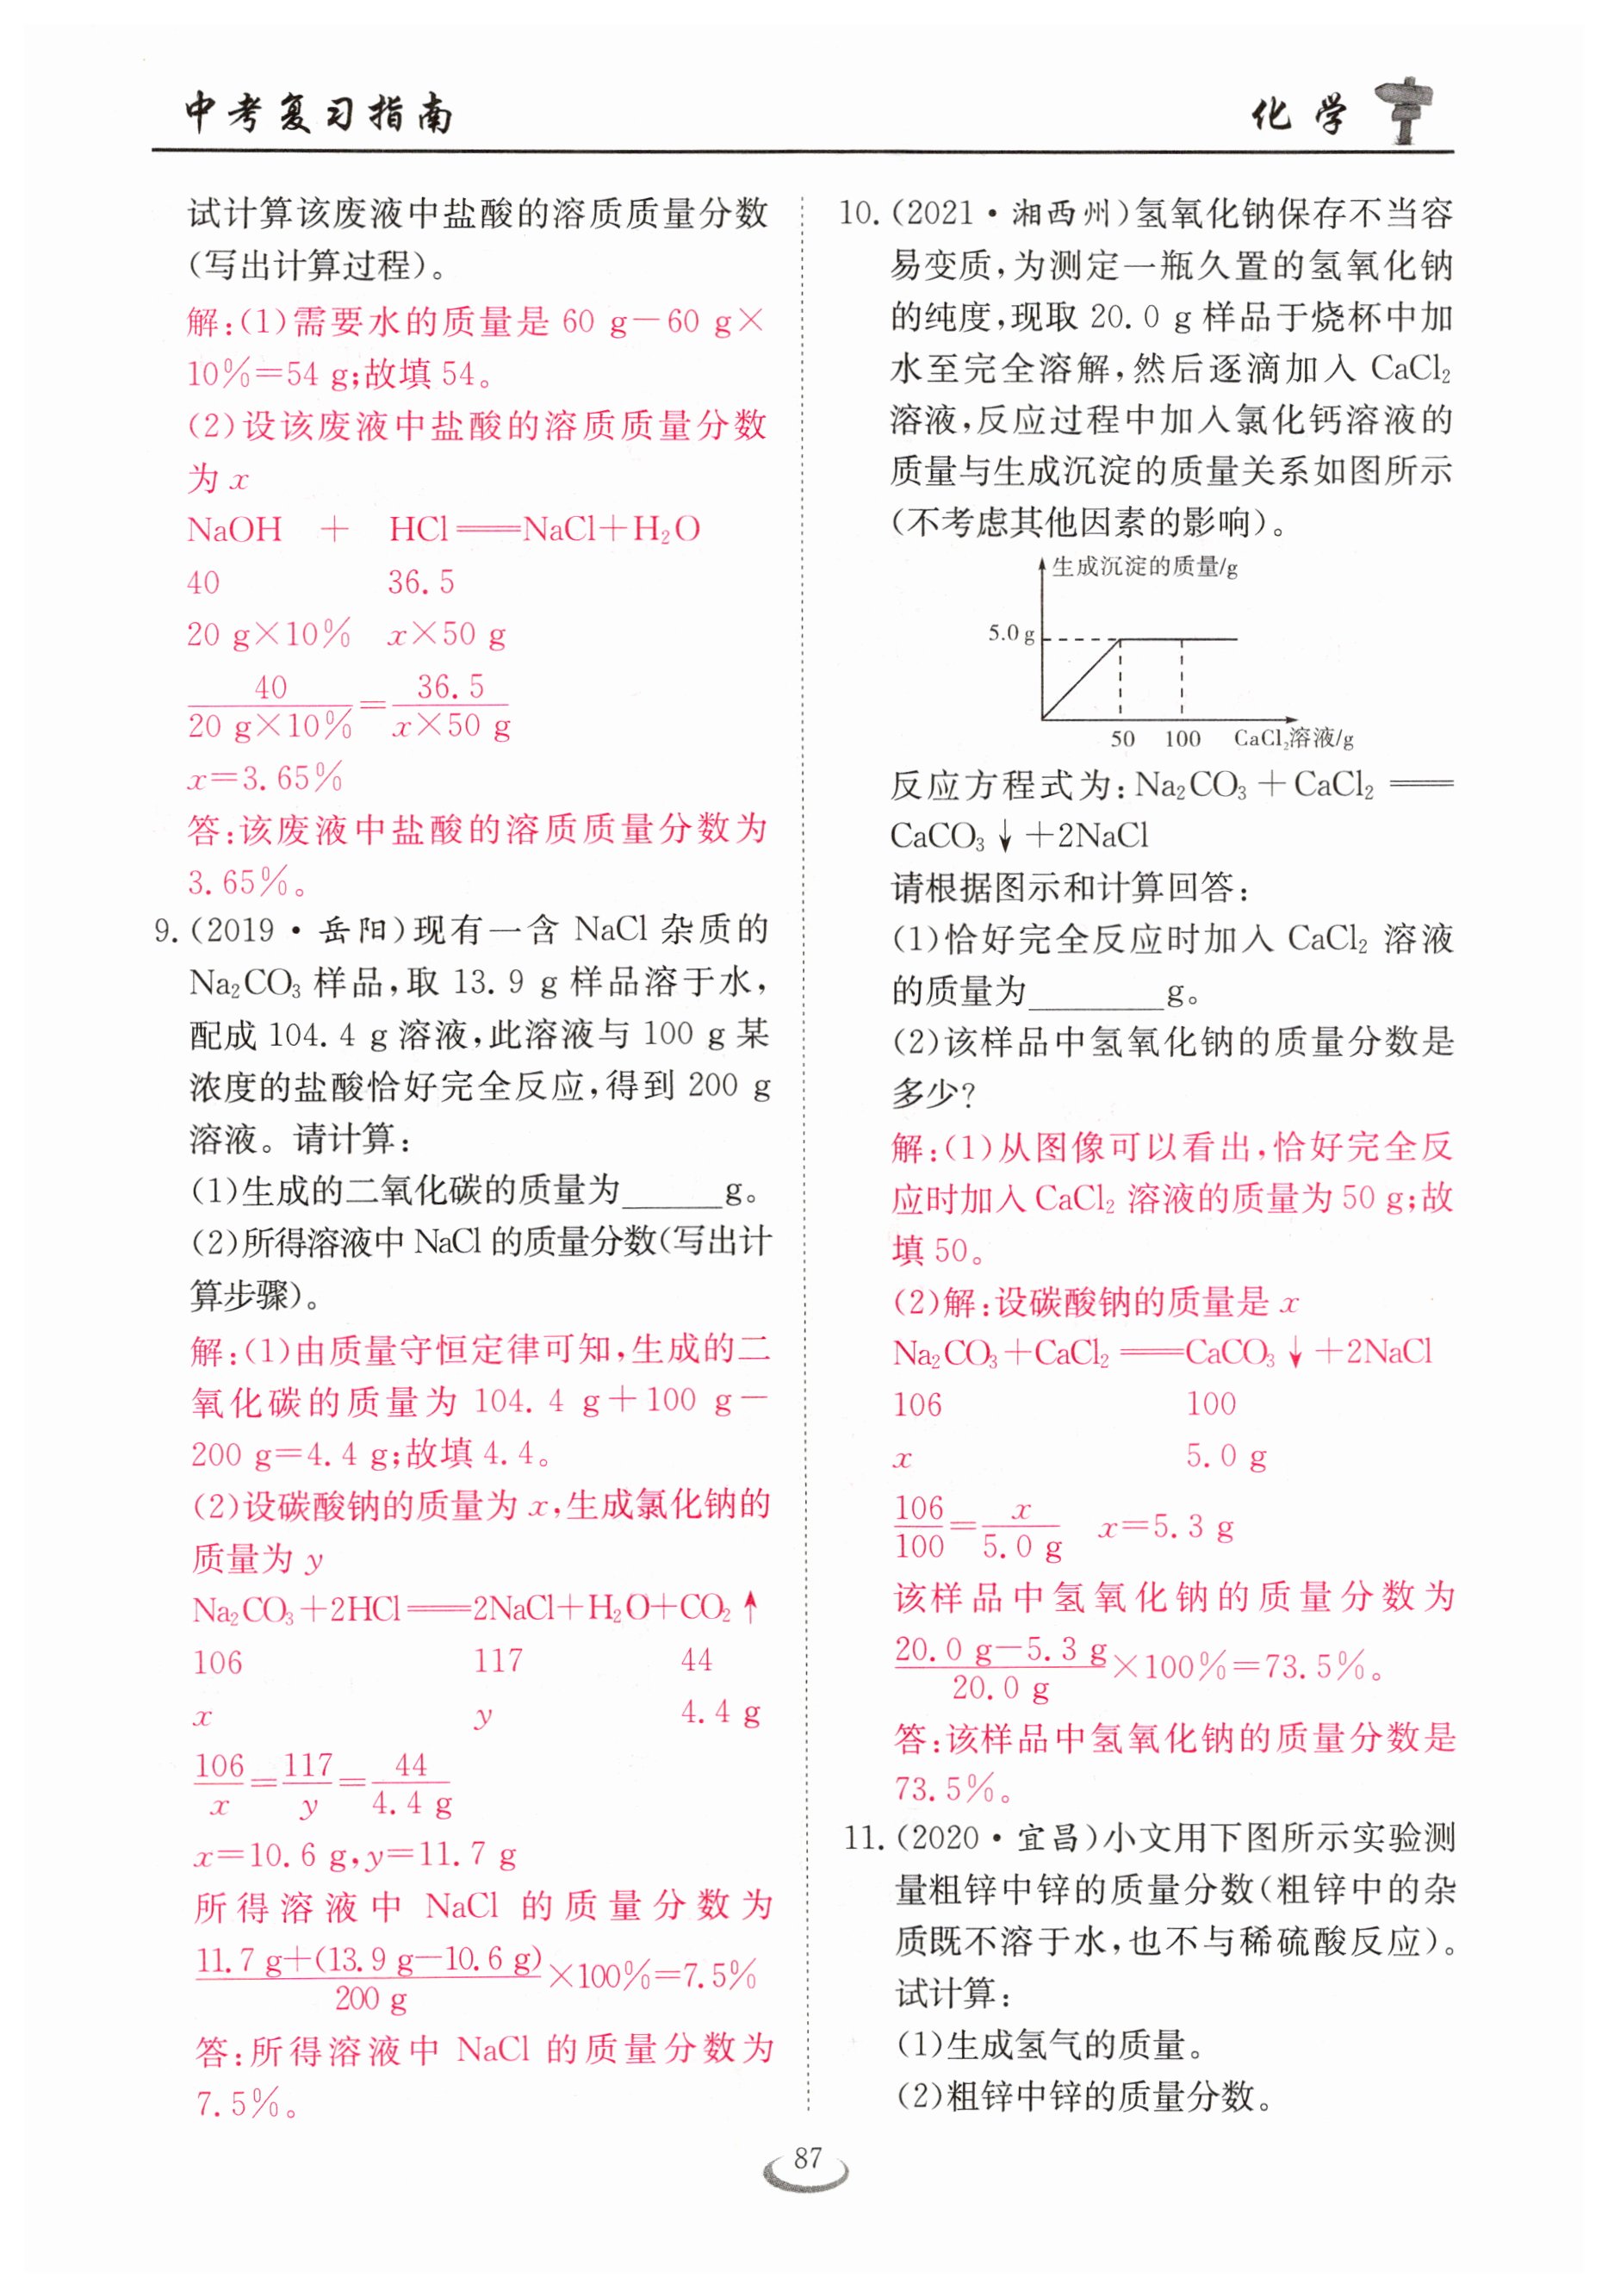 中考复习指南
化学
试计算该废液中盐酸的溶质质量分数
(写出计算过程)。
解:(1)需要水的质量是 60 g－60 g×
10%=54 g;故填 54。
(2)设该废液中盐酸的溶质质量分数
为 x
NaOH + HCl══NaCl+H₂O
40 36.5
20 g×10% x×50 g
40/(20 g×10%)=36.5/(x×50 g)
x=3.65%
答:该废液中盐酸的溶质质量分数为
3.65%。
9.(2019·岳阳)现有一含 NaCl 杂质的
Na₂CO₃ 样品,取 13.9 g 样品溶于水,
配成 104.4 g 溶液,此溶液与 100 g 某
浓度的盐酸恰好完全反应,得到 200 g
溶液。请计算:
(1)生成的二氧化碳的质量为______g。
(2)所得溶液中 NaCl 的质量分数(写出计
算步骤)。
解:(1)由质量守恒定律可知,生成的二
氧化碳的质量为 104.4 g+100 g－
200 g=4.4 g;故填 4.4。
(2)设碳酸钠的质量为 x,生成氯化钠的
质量为 y
Na₂CO₃+2HCl══2NaCl+H₂O+CO₂↑
106 117 44
x y 4.4 g
106/x=117/y=44/4.4 g
x=10.6 g,y=11.7 g
所得溶液中 NaCl 的质量分数为
(11.7 g+(13.9 g－10.6 g))/200 g×100%=7.5%
答:所得溶液中 NaCl 的质量分数为
7.5%。
10.(2021·湘西州)氢氧化钠保存不当容
易变质,为测定一瓶久置的氢氧化钠
的纯度,现取 20.0 g 样品于烧杯中加
水至完全溶解,然后逐滴加入 CaCl₂
溶液,反应过程中加入氯化钙溶液的
质量与生成沉淀的质量关系如图所示
(不考虑其他因素的影响)。
生成沉淀的质量/g
5.0 g
50 100 CaCl₂溶液/g
反应方程式为:Na₂CO₃+CaCl₂══
CaCO₃↓+2NaCl
请根据图示和计算回答:
(1)恰好完全反应时加入 CaCl₂ 溶液
的质量为________g。
(2)该样品中氢氧化钠的质量分数是
多少?
解:(1)从图像可以看出,恰好完全反
应时加入 CaCl₂ 溶液的质量为 50 g;故
填 50。
(2)解:设碳酸钠的质量是 x
Na₂CO₃+CaCl₂══CaCO₃↓+2NaCl
106 100
x 5.0 g
106/100=x/5.0 g x=5.3 g
该样品中氢氧化钠的质量分数为
(20.0 g－5.3 g)/20.0 g×100%=73.5%。
答:该样品中氢氧化钠的质量分数是
73.5%。
11.(2020·宜昌)小文用下图所示实验测
量粗锌中锌的质量分数(粗锌中的杂
质既不溶于水,也不与稀硫酸反应)。
试计算:
(1)生成氢气的质量。
(2)粗锌中锌的质量分数。
87